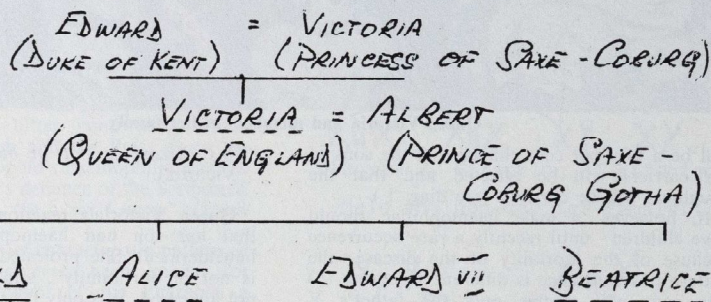 EDWARD = VICTORIA
(DUKE OF KENT) (PRINCESS OF SAXE-COBURG)
VICTORIA = ALBERT
(QUEEN OF ENGLAND) (PRINCE OF SAXE-
COBURG GOTHA)
ALICE EDWARD VII BEATRICE